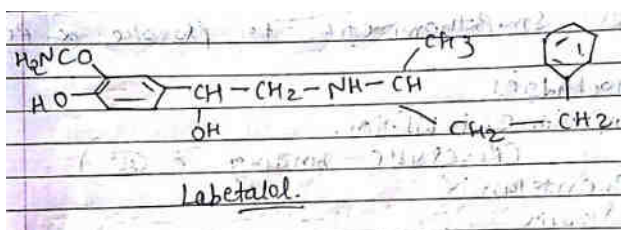 H₂NCO
CH3
HO-
-CH-CH₂-NH-CH
OH
CH₂-CH2.
Labetalol.